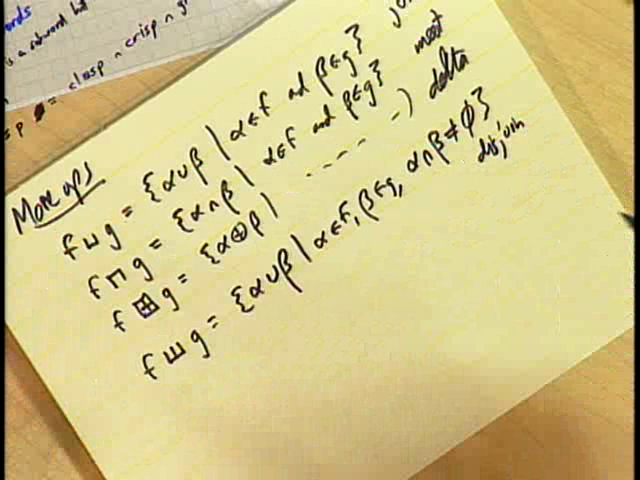 ords
is a outword but
= clasp ∩ crisp ∩ gr
More ops
f ⊔ g = {α∪β | α∈f and β∈g} join
f ⊓ g = {α∩β | α∈f and β∈g} meet
f ⊞ g = {α⊕β | . . . . . } delta
f ш g = {α∪β | α∈f, β∈g, α∩β≠∅}
disj'oin